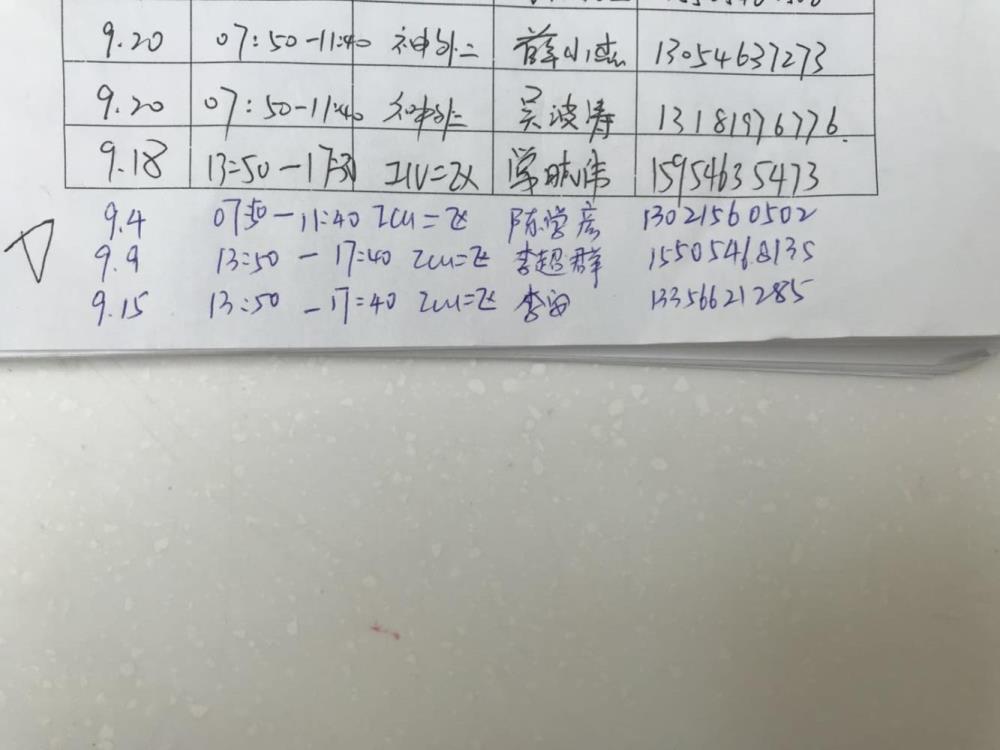 9.20 07:50-11:40 神外二 薛小杰 13054637273
9.20 07:50-11:40 神外二 吴波涛 13181976776.
9.18 13:50-17:30 15954635473
9.4 07:50-11:40 ICU二区 陈学彦 13021560502
9.9 13:50-17:40 ICU二区 李超群 15505468135
9.15 13:50-17:40 ICU二区 13356621285